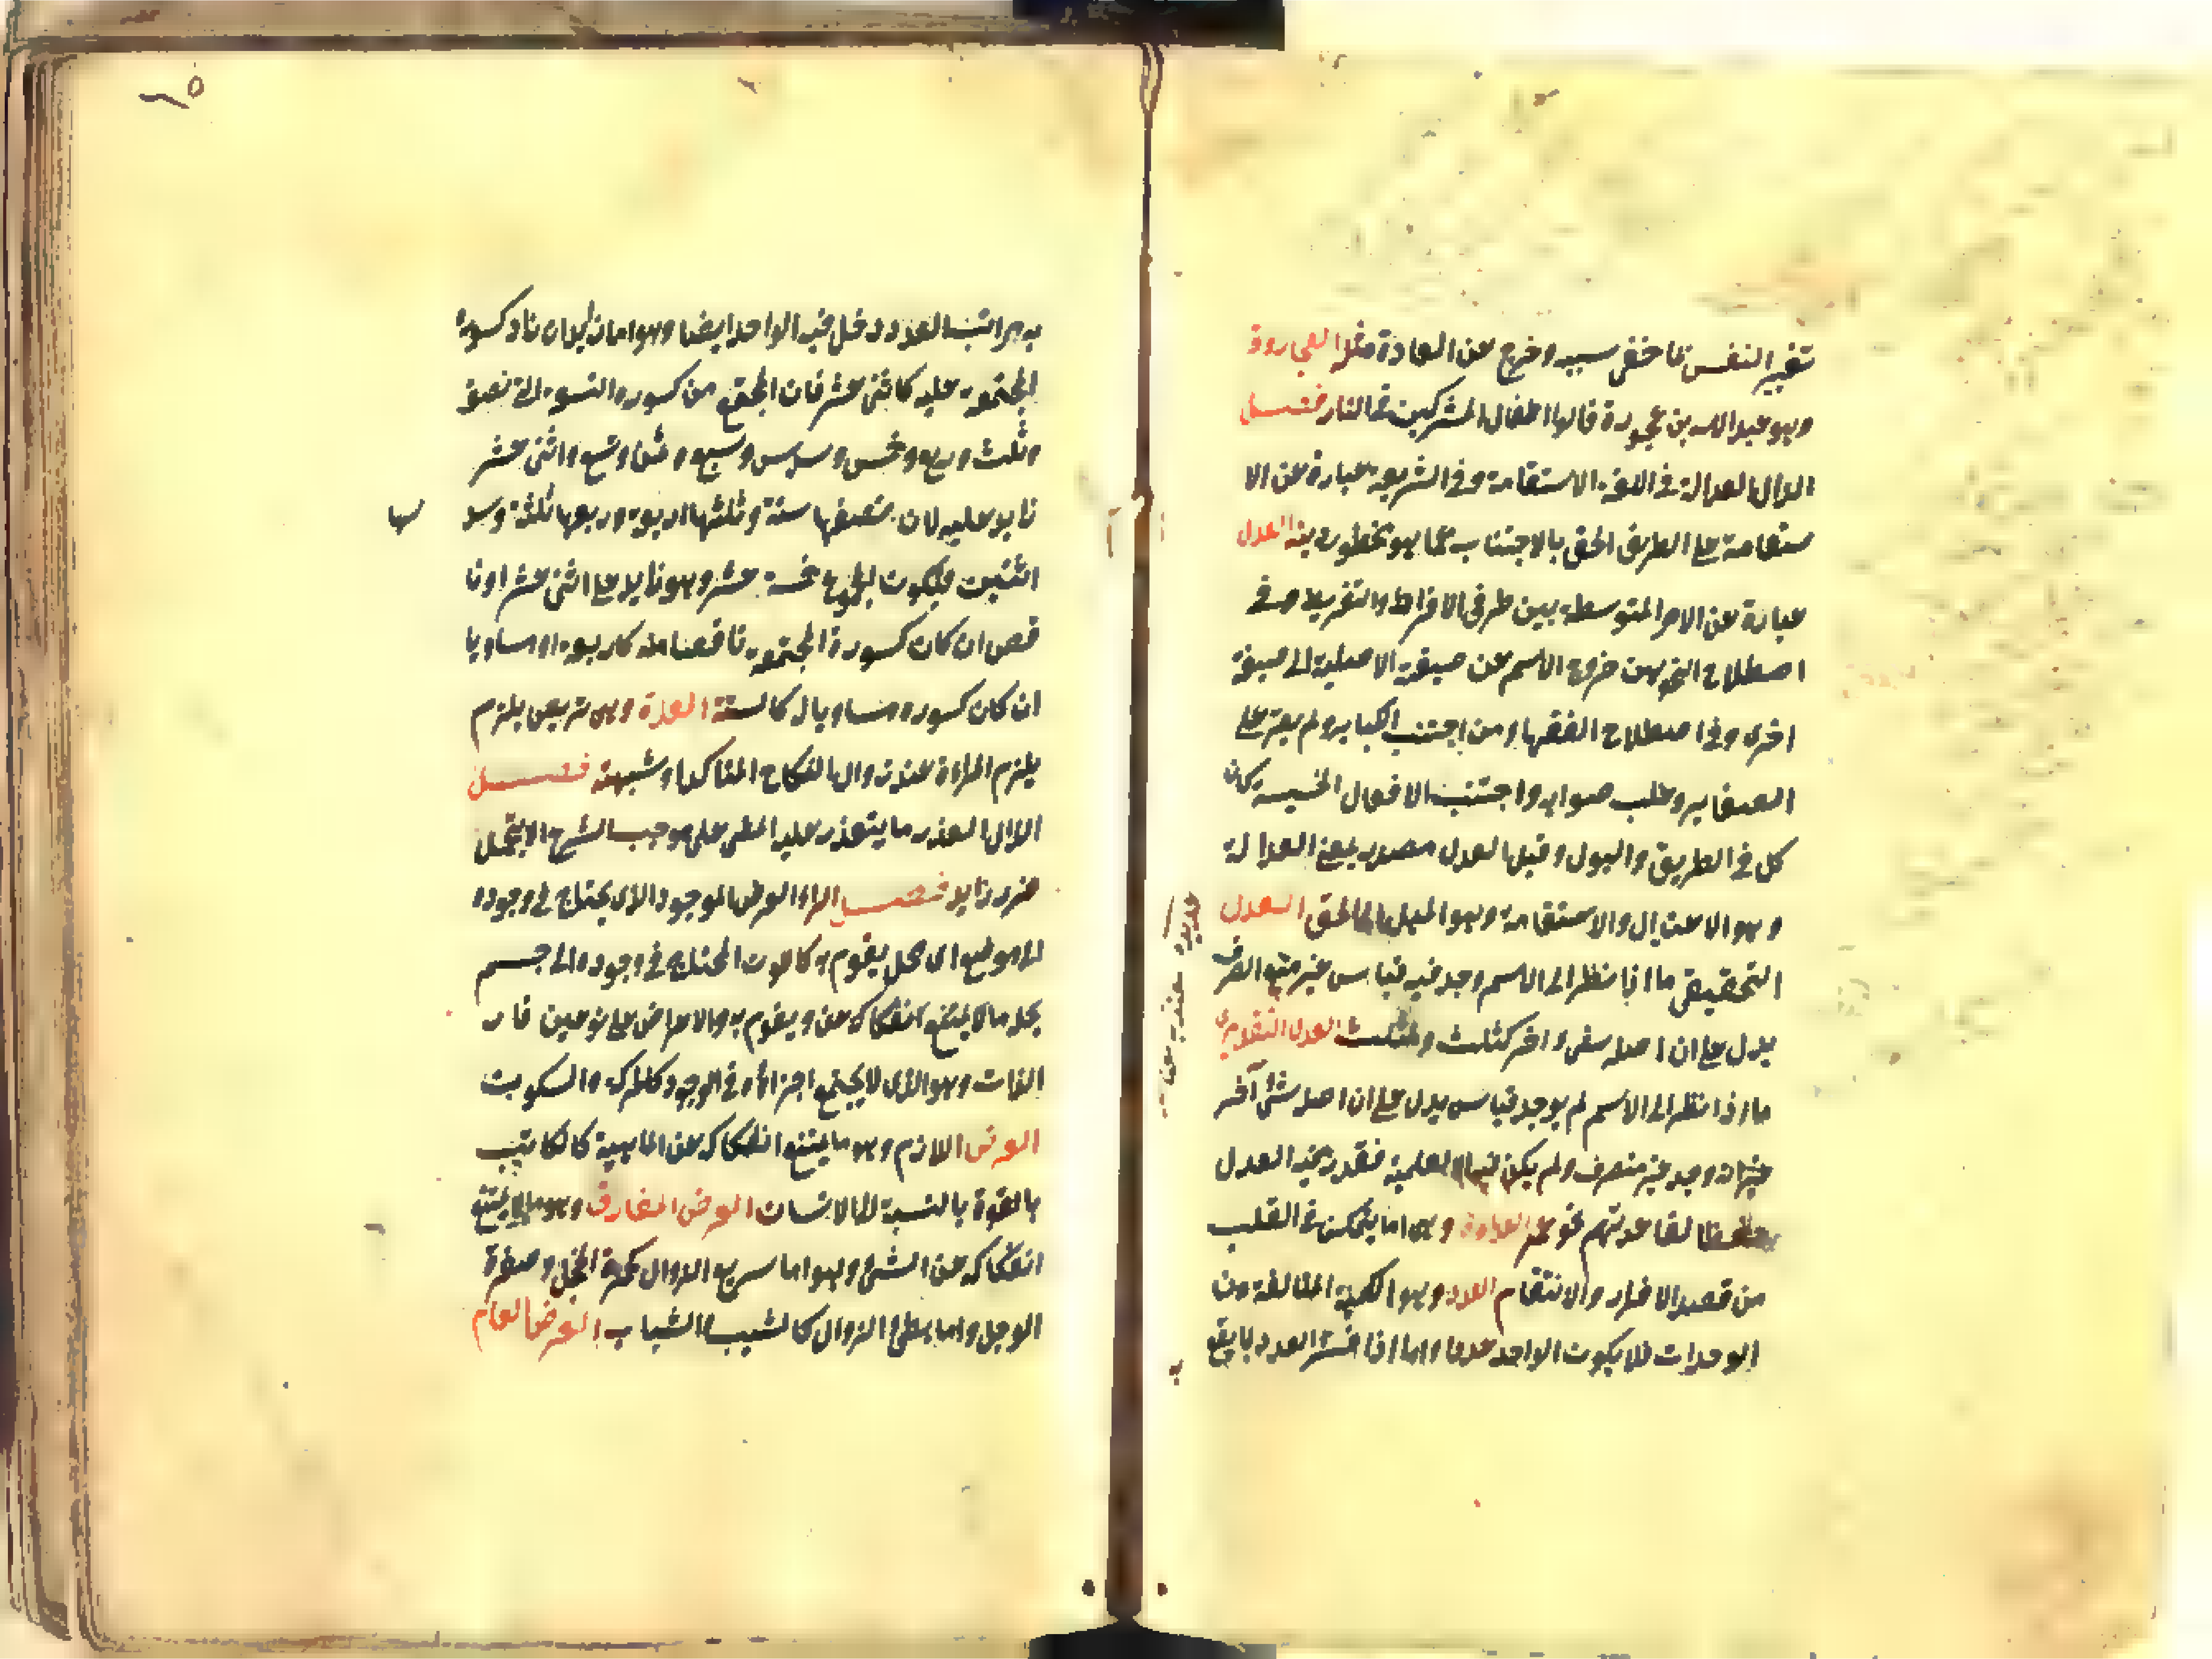 تغير النفس بما خفى سببه وخرج عن العادة مثله العجاردة
وهو عبد الله بن عجردة قالوا اطفال المشركين فى النار فصل
الدال العدالة فى اللغة الاستقامة وفى الشريعة عبارة عن الا
ستقامة على الطريق الحق بالاجتناب عما هو محظور دينه العدل
عبارة عن الامر المتوسطه بين طرفى الافراط والتفريط وفى
اصطلاح النحويين خروج الاسم عن صيغته الاصلية الى صيغة
اخرى وفى اصطلاح الفقهاء من اجتنب الكباير ولم يصر على
الصغاير وغلب صوابه واجتنب الافعال الخسيسة كالا
كل فى الطريق والبول وقيل العدل مصدر بمعنى العدالة
وهو الاعتدال والاستقامة وهو الميل الى الحق العدل
التحقيقى ما اذا نظر الى الاسم وجد فيه قياس غير منع الصرف
يدل على ان اصله شىء اخر كثلث ومثلث العدل التقديرى
ما اذا نظر الى الاسم لم يوجد قياس يدل على ان اصله شئ آخر
غير انه وجد غير منصرف ولم يكن فيه الا العلمية فقدر فيه العدل
حفظا لقاعدتهم نحو عمر العداوة وهى ما يتمكن فى القلب
من قصد الاضرار والانتقام العدد وهو الكمية المتالفة من
الوحدات فلا يكون الواحد عددا واما اذا فسر العدد بما يقع
به
به مراتب العدد دخل فيه الواحد ايضا وهو اما زايد ان زاد كسوره
المجتمعة عليه كاثنى عشر فان المجتمع من كسوره التسعة التى نصف
وثلث وربع وخمس وسدس وسبع وثمن وتسع واثنى عشر
زايد عليه لان نصفها ستة وثلثها اربعة وربعها ثلثة وسد
سها
اثنين فيكون المجموع خمسة عشر وهو زايد على اثنى عشر او نا
قص ان كان كسوره المجتمعة ناقصا منه كاربعة او مساويا
ان كان كسوره مساويا له كالستة العدة وهى تربص يلزم
يلزم المراة عند زوال النكاح المتاكد او شبهته فصل
الذال العذر ما يتعذر عليه المضى على موجب الشرع الا بتحمل
ضرر زايد فصل الراء العرض الموجود الذى يحتاج فى وجوده
الى موضع اى محل يقوم به كاللون المحتاج فى وجوده الى جسم
يحله ما لا يمتنع انفكاكه عن ويقوم به والاعراض على نوعين قار
الذات وهو الذى لا يجتمع اجزاؤه فى الوجود كالحركة والسكون
العرض اللازم وهو ما يمتنع انفكاكه عن الماهية كالكاتب
بالقوة بالنسبة الى الانسان العرض المفارق وهو ما لا يمتنع
انفكاكه عن الشئ وهو اما سريع الزوال كحمرة الخجل وصفرة
الوجل واما بطئ الزوال كالشيب والشباب العرض العام